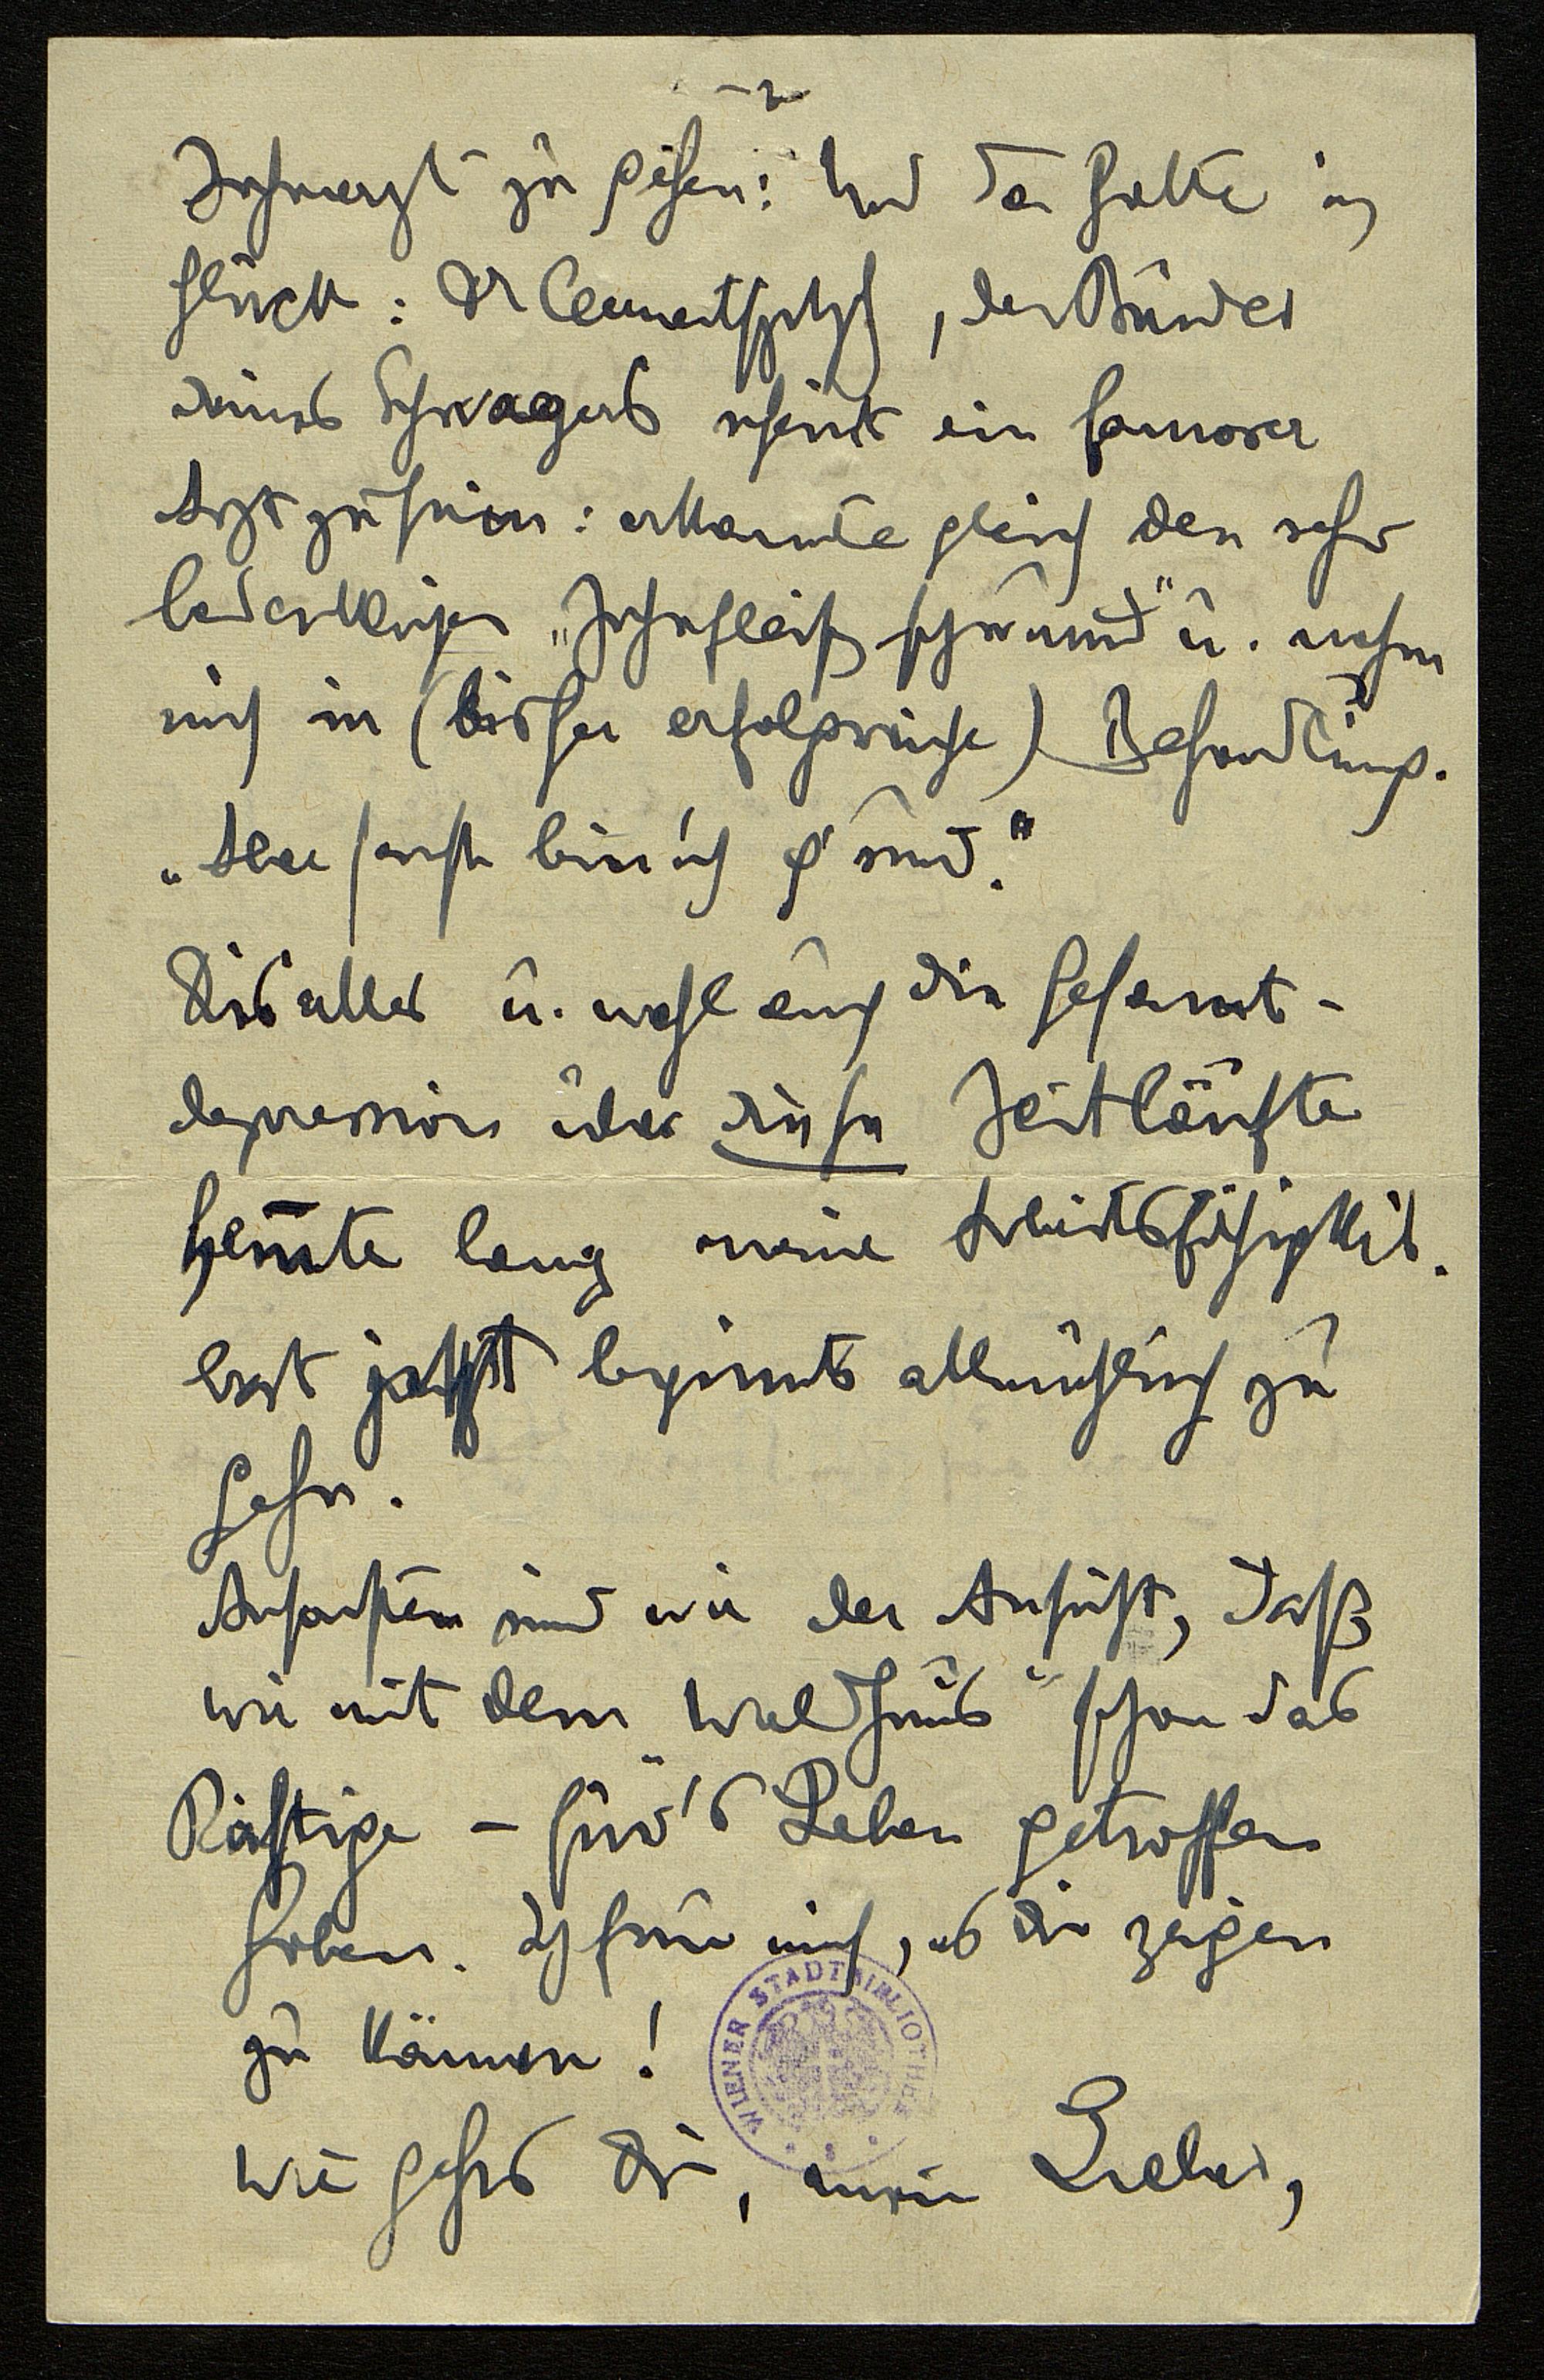 -2-
Zahnarzt zu gehen: Und da hatte ich
Glück: Dr , der Bruder
deines Schwagers scheint ein famoser
Arzt zu sein: erkannte gleich den sehr
bedenklichen „Zahnfleischschwund“ u. nahm
mich in (bisher erfolgreiche) Behandlung.
„Aber sonst bin ich g'sund.“
Dies alles u. wohl auch die Gesamt-
depression über diese Zeitläufte
hemmte lang meine Arbeitsfähigkeit.
Erst jetzt beginnts allmählich zu
gehn.
Ansonsten sind wir der Ansicht, daß
wir mit dem Waldhaus schon das
Richtige – für's Leben getroffen
haben. Ich freu mich, es Dir zeigen
zu können!
WIENER STADTBIBLIOTHEK
Wie gehts Dir, mein Lieber,